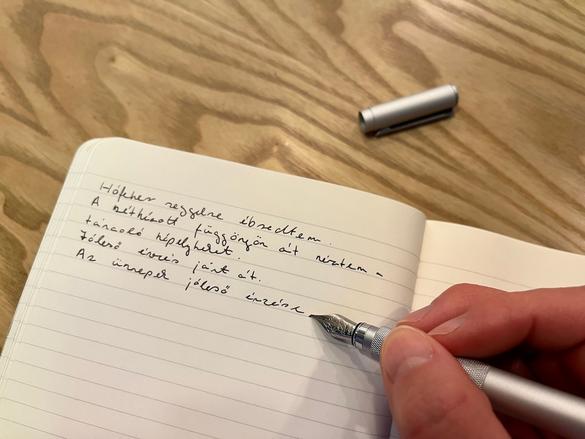 Hófehér reggelre ébredtem.
A széthúzott függönyön át néztem a
táncoló hópelyheket.
Jóleső érzés járt át.
Az ünnepek jóleső érzése